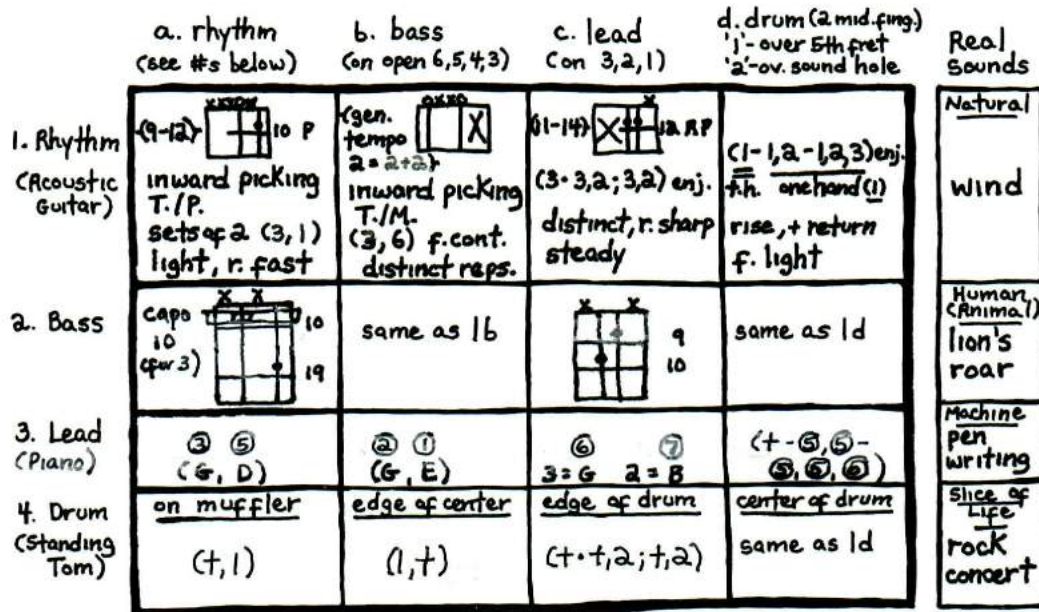 a. rhythm
(see #s below)
b. bass
(on open 6,5,4,3)
c. lead
(on 3,2,1)
d. drum (2 mid.fing.)
'1'-over 5th fret
'2'-ov. sound hole
Real
Sounds
1. Rhythm
(Acoustic
Guitar)
xxxox
(9-12)
10 P
inward picking
T./P.
sets of 2 (3,1)
light, r. fast
oxxo
(gen.
tempo
2 = 2+2)
X
inward picking
T./M.
(3,6) f.cont.
distinct reps.
x
(11-14)
X
12 RP
(3·3,2;3,2) enj.
distinct, r. sharp
steady
(1-1,2-1,2,3) enj.
t.h. one hand (1)
rise, + return
f. light
Natural
wind
2. Bass
x x
capo
10
(for 3)
10
19
same as 1b
x x
9
10
same as 1d
Human,
(Animal)
lion's
roar
3. Lead
(Piano)
3 5
(G, D)
2 1
(G, E)
6 7
3=G 2=B
(t-5,5-
5,5,6)
Machine
pen
writing
4. Drum
(Standing
Tom)
on muffler
(t,1)
edge of center
(1,t)
edge of drum
(t·t,2;t,2)
center of drum
same as 1d
Slice of
Life
rock
concert